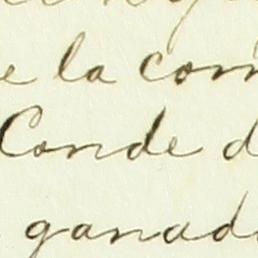 e la com
Conde d
ganad